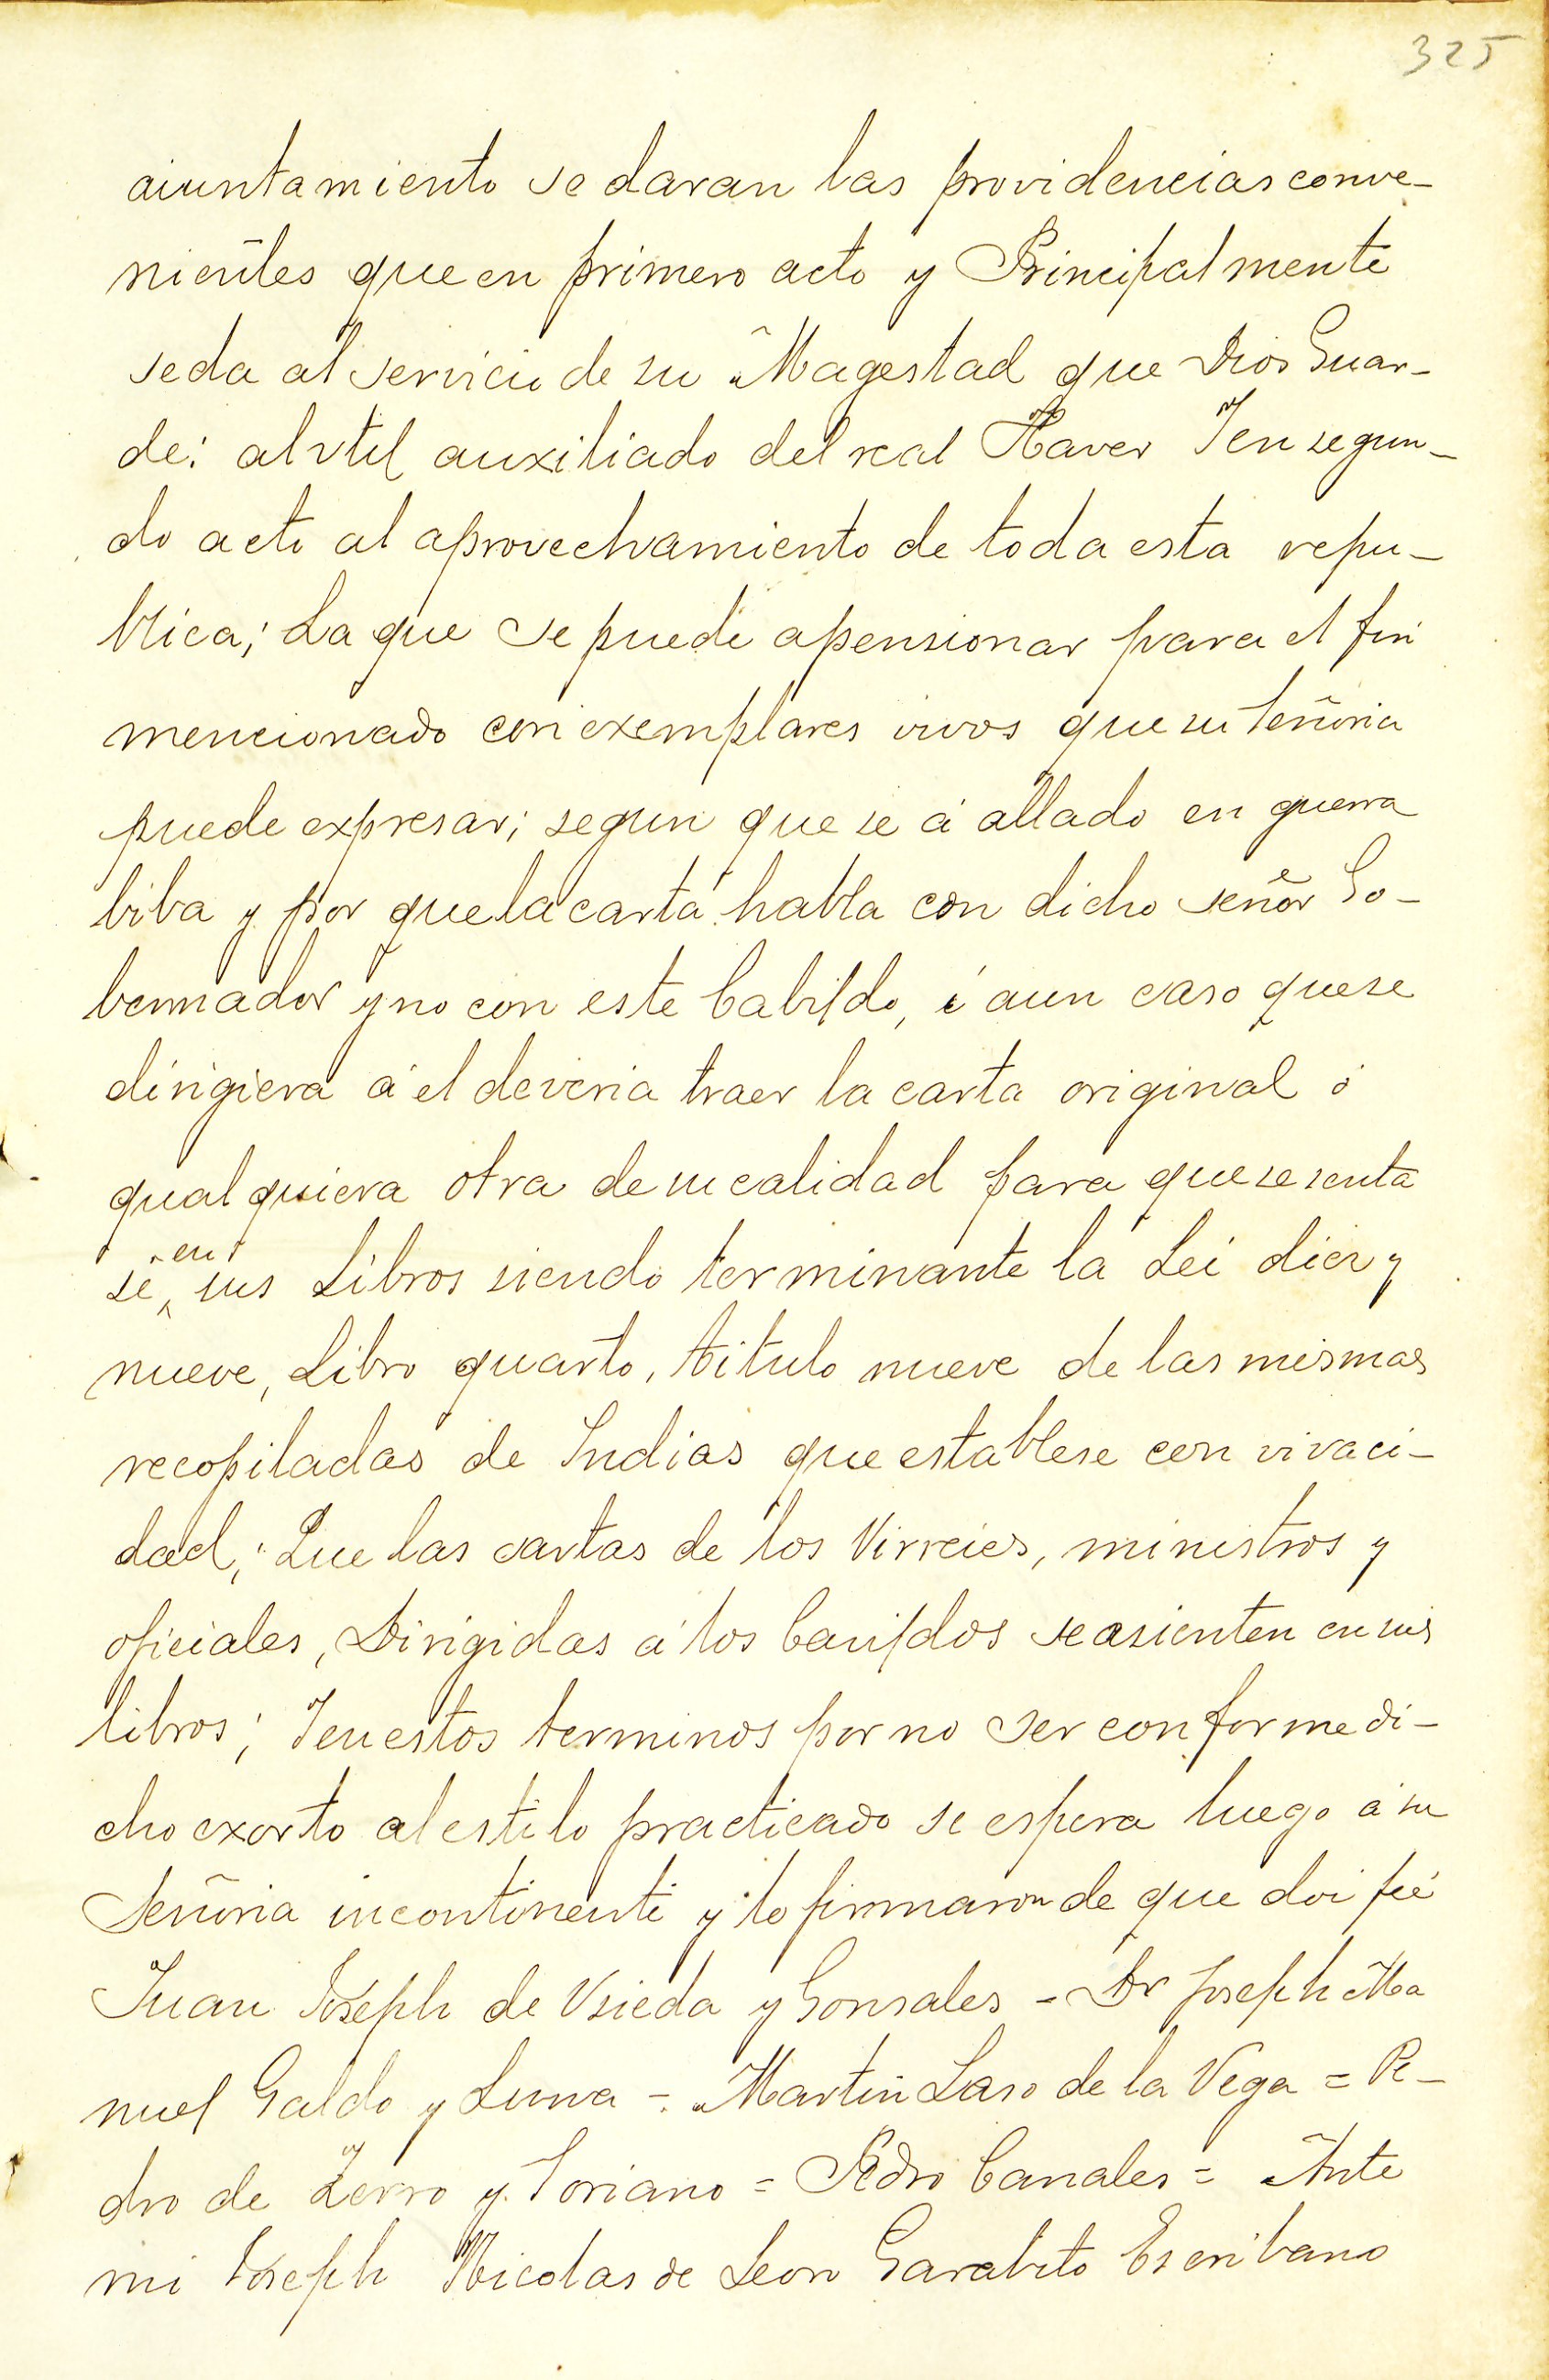 325
aiuntamiento se daran las providencias conve-
nientes que en primero acto y Principalmente
se da al servicio de su Magestad que Dios Guar-
de: al vtil auxiliado del real Haver I en segun-
do acto al aprovechamiento de toda esta repu-
blica; La que se puede apensionar para el fin
mencionado con exemplares vivos que su Señoria
puede expresar; segun que se á allado en guerra
biba y por que la carta habla con dicho señor Go-
bernador y no con este Cabildo, é aun caso que se
dirigiera á el deveria traer la carta original ó
qual quiera otra de su calidad para que se senta
se en sus Libros siendo terminante la Lei diez y
nueve, Libro quarto, titulo nueve de las mismas
recopiladas de Indias que establese con vivaci-
dad; Que las cartas de los Virreies, ministros y
oficiales, Dirigidas á los Cavildos se asienten en sus
libros; I en estos terminos por no ser conforme di-
cho exorto al estilo practicado se espera luego á su
Señoria incontinenti y lo firmaron de que doi feé
Juan Joseph de Vsieda y Gonsales - Dr Joseph Ma
nuel Galdo y Luna =. Martin Laso de la Vega = Pe-
dro de Zerro y Soriano = Pedro Canales = Ante
mi Joseph Nicolas de Leon Garabito Escribano